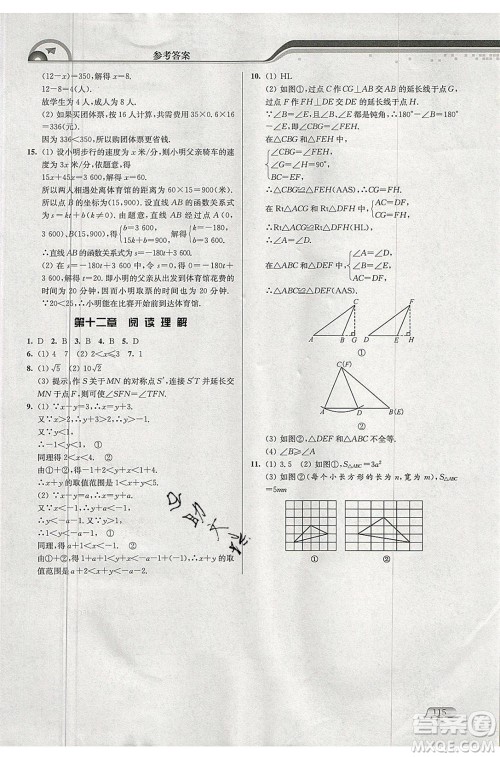 参考答案
(12－x)＝350，解得 x＝8.
12－8＝4(人).
故学生为 4 人，成人为 8 人.
(2) 如果买团体票，按 16 人计算，共需费用：35×0.6×16
＝336(元).
因为 336＜350，所以购团体票更省钱.
15. (1) 设小明步行的速度为 x 米/分，则小明父亲骑车的速
度为 3x 米/分，依题意，得
15x＋45x＝3 600，解得 x＝60.
所以两人相遇处离体育馆 60×15＝900(米).
所以点 B 的坐标为(15，900). 设直线 AB 的函数关系式
为 s＝kt＋b(k≠0). 由题意，直线 AB 经过点 A(0，3 600)、
B(15，900)，得 b＝3 600, 15k＋b＝900, 解得 k＝－180, b＝3 600.
∴直线 AB 的函数关系式为 s＝－180t＋3 600.
(2) 在 s＝－180t＋3 600 中，令 s＝0，得 0＝－180t＋
3 600. 解得 t＝20. 即小明的父亲从出发到体育馆花费的
时间为 20 分钟，因而小明取票的时间也为 20 分钟.
∵20＜25，∴小明能在比赛开始前到达体育馆.
第十二章 阅读理解
1. D 2. B 3. B 4. B 5. D
6. (1) 4 7 (2) 2＜x≤3 7. 1
8. (1) √5 (2) 10√2
(3) 提示，作 S 关于 MN 的对称点 S′，连接 S′T 与 MN
交于点 F，则此时可使∠SFN＝∠TFN.
9. (1) ∵x－y＝3，∴x＝y＋3.
又∵x＞2，∴y＋3＞2，∴y＞－1.
又∵y＜1，∴－1＜y＜1. ①
同理得 2＜x＜4. ②
由①＋②，得－1＋2＜y＋x＜1＋4.
∴x＋y 的取值范围是 1＜x＋y＜5.
(2) ∵x－y＝a，∴x＝y＋a.
又∵x＜－1，∴y＋a＜－1，∴y＜－a－1.
又∵y＞1，∴1＜y＜－a－1. ①
同理，得 a＋1＜x＜－1. ②
由①＋②，得 1＋a＋1＜y＋x＜－a－1＋(－1). ∴x＋y 的取
值范围是 a＋2＜x＋y＜－a－2.
10. (1) HL
(2) 如图①，过点 C 作 CG⊥AB 交 AB 的延长线于点 G，
过点 F 作 FH⊥DE 交 DE 的延长线于点 H.
∵∠B＝∠E，且∠B、∠E 都是钝角，∴180°－∠B＝
180°－∠E，即∠CBG＝∠FEH.
在△CBG 和△FEH 中，
∠CBG＝∠FEH,
∠G＝∠H＝90°,
BC＝EF,
∴△CBG≌△FEH(AAS). ∴CG＝FH.
在 Rt△ACG 和 Rt△DFH 中，AC＝DF, CG＝FH,
∴Rt△ACG≌Rt△DFH(HL).
∴∠A＝∠D.
在△ABC 和△DEF 中，∠A＝∠D, ∠B＝∠E, AC＝DF,
∴△ABC≌△DEF(AAS).
C F
A B G D E H
①
C(F)
A D B(E)
②
(3) 如图②，△DEF 和△ABC 不全等.
(4) ∠B≥∠A
11. (1) 3.5 (2) 如图①，S△ABC＝3a²
(3) 如图②(每个小长方形的长为 n，宽为 m)，S△ABC
＝5mn
① ②
115
答案圈
MXQE.COM